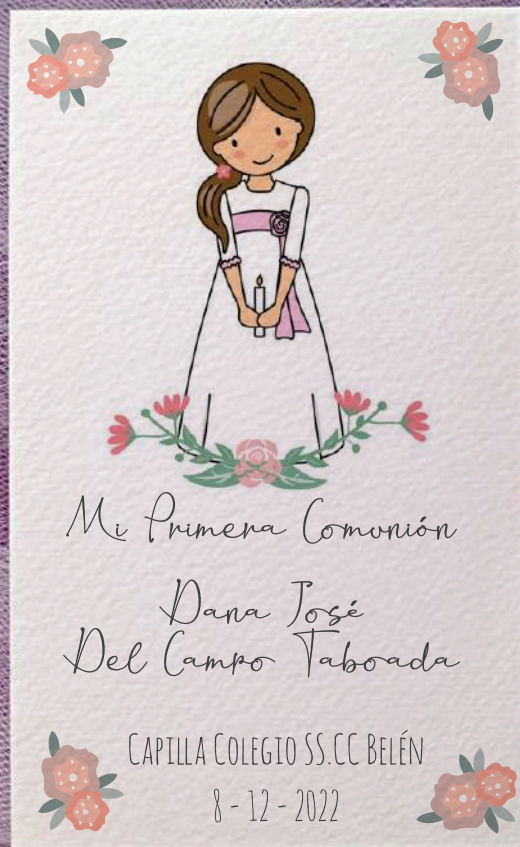 Mi Primera Comunión
Dana José
Del Campo Taboada
Capilla Colegio SS.CC Belén
8 - 12 - 2022